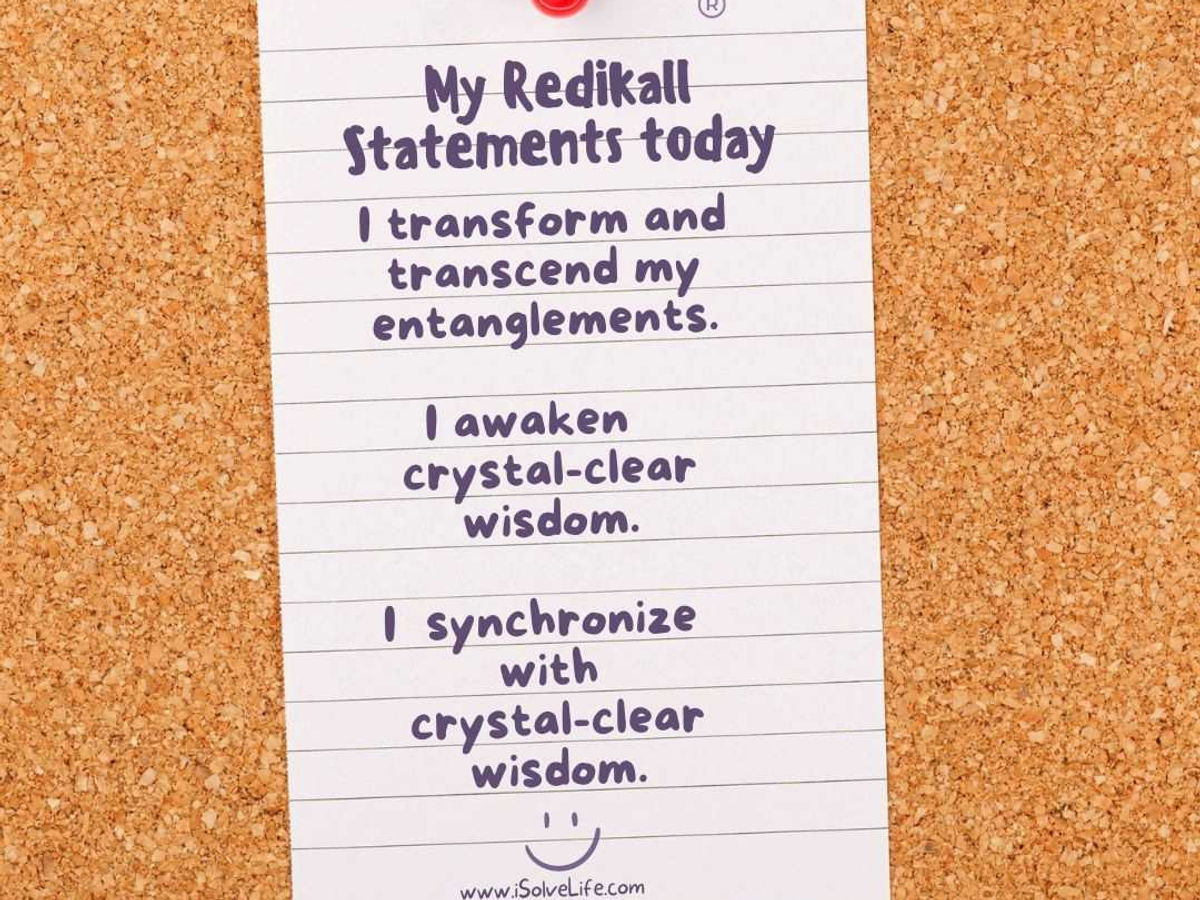 ®
My Redikall
Statements today
I transform and
transcend my
entanglements.
I awaken
crystal-clear
wisdom.
I synchronize
with
crystal-clear
wisdom.
www.iSolveLife.com